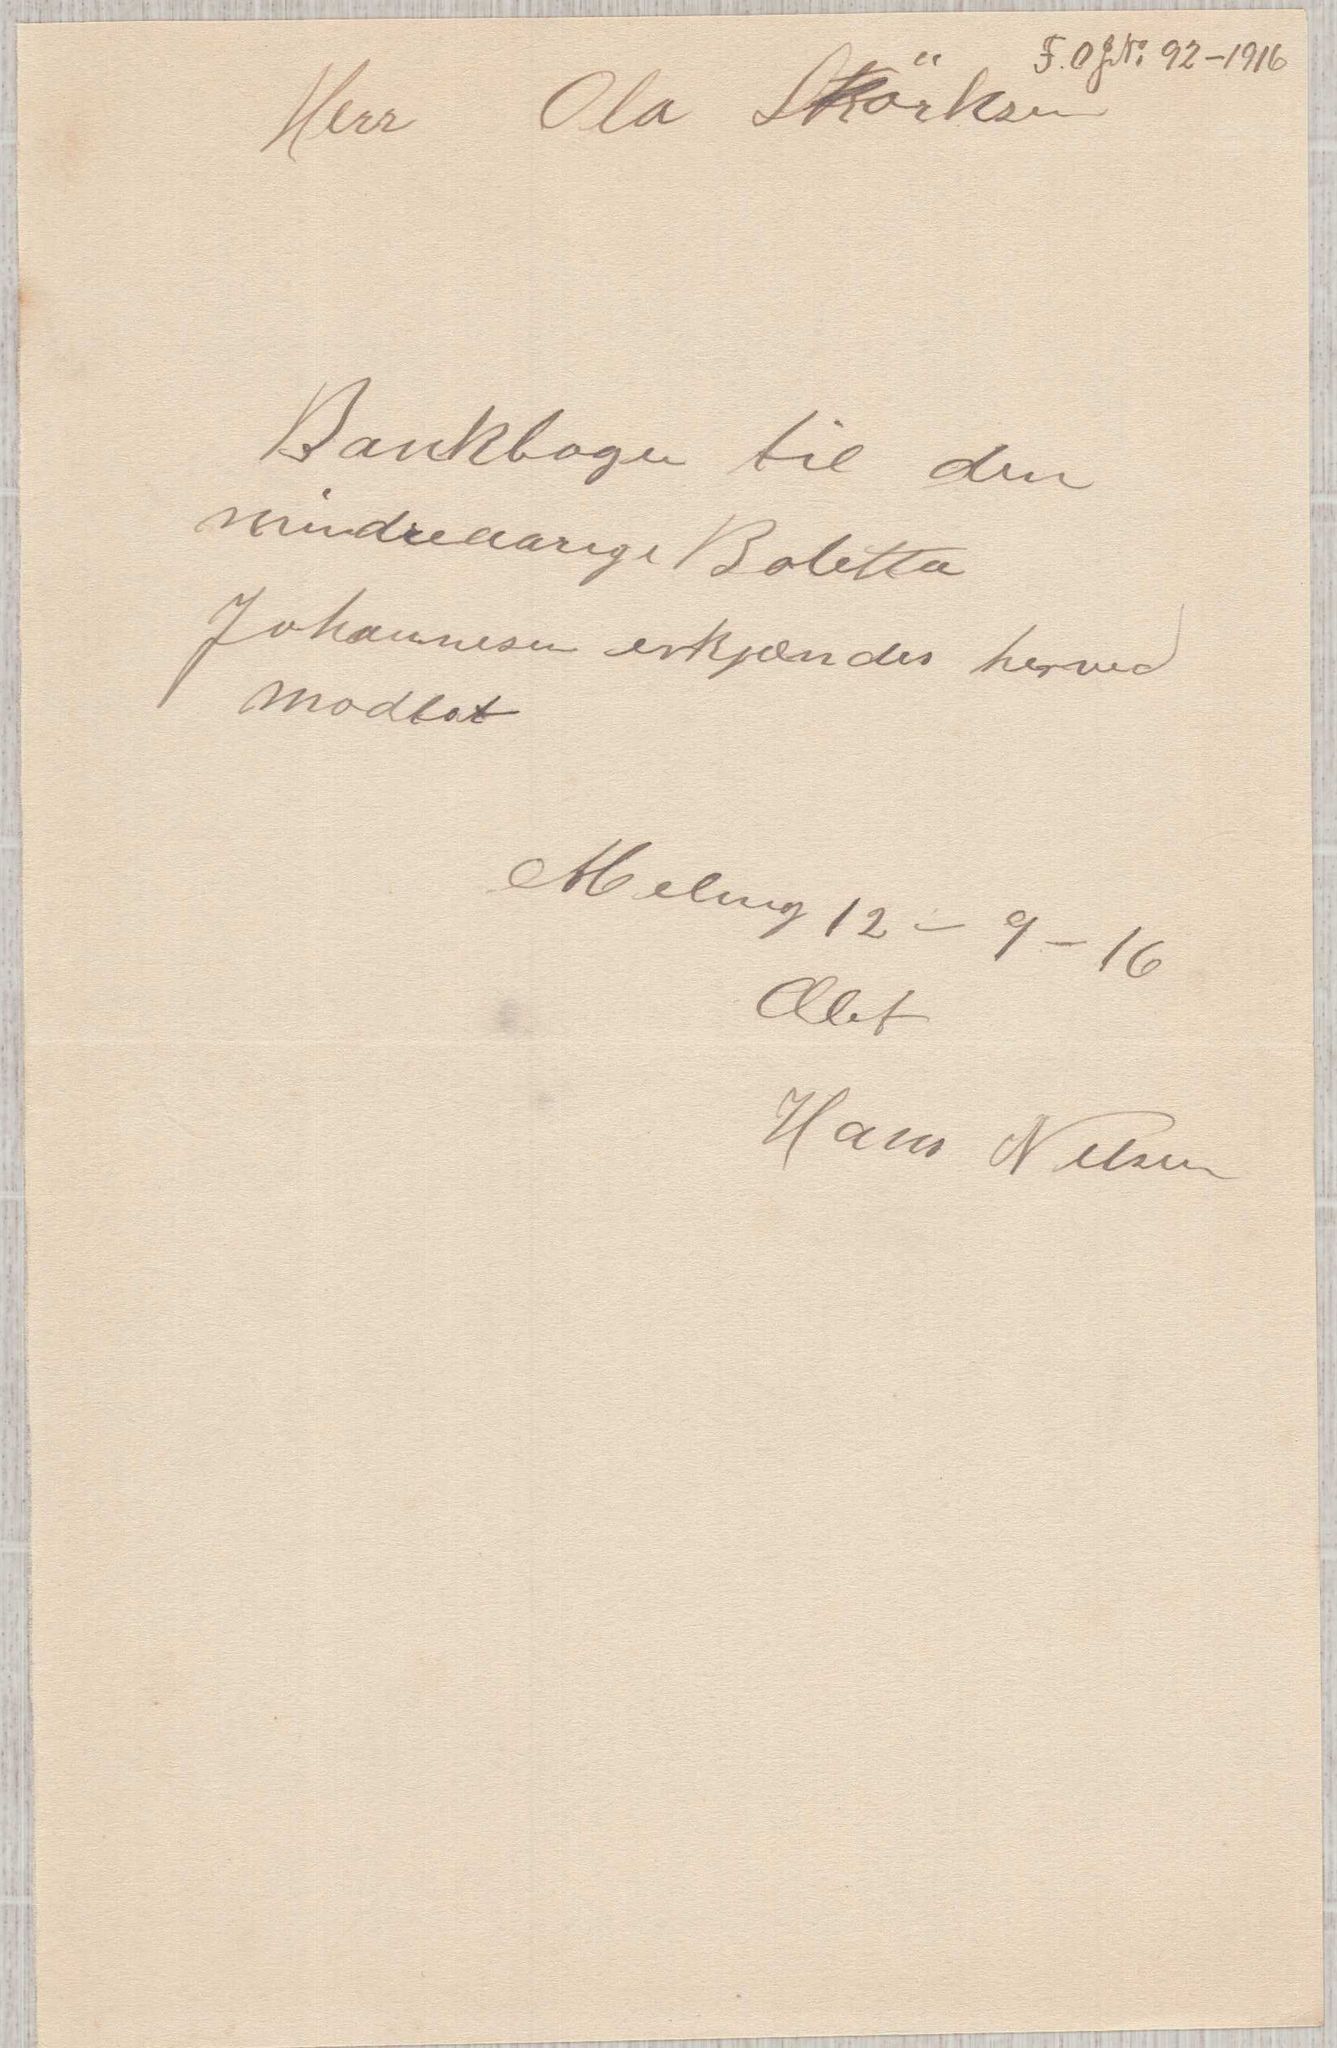 F. O g N: 92-1916
Herr Ola Störksen
Bankbogen til den
mindreaarige Boletta
Johannesen erkjendes herved
modtat
Meling 12 - 9 - 16
Hans Nelsen